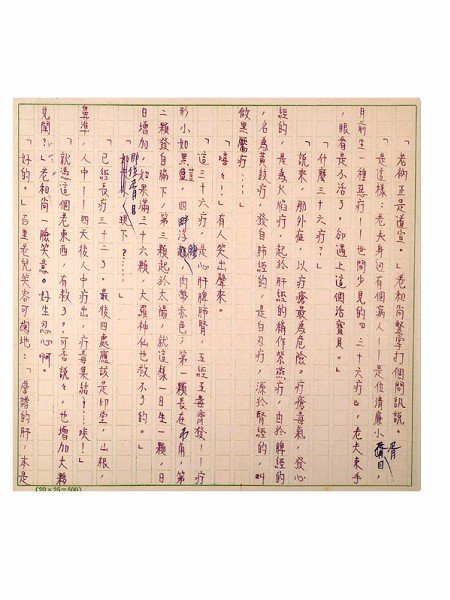 「老衲正是道宣。」老和尚豎掌打個問訊說。
「是這樣：老夫身邊有個病人——是位清廉小胥，
月前生一種惡疔——世間少見的『三十六疔』，老夫束手
，眼看是小活了，卻遇上這個活寶貝。」
「什麼三十六疔？」
說來，那外症，以疔瘡最為危險。疔瘡毒氣，發心
經的，是為火焰疔，起於肝經的稱作紫燕疔，由於脾經的
，名為黃鼓疔，發自肺經的，是白刃疔，源於腎經的，叫
做黑靨疔……
「嘻々！」有人笑出聲來。
「這三十六疔，是心肝脾肺腎，五經五毒齊發——疔
形小如黑豆，四畔浮腫，肉帶赤色，第一顆長在爪角，第
二顆發自脇下，第三顆起於太陽，就這樣一日生一顆，日
日增加，如果滿三十六顆，大羅神仙也救不了的。」
「那位胥目現下？……」
「已經長疔三十二了。最後四處應該是印堂，山根，
鼻準，人中——四天後人中疔出，疔毒集結——唉！」
「就憑這個老東西，有救了？可否說々，也增加大夥
見聞？」老和尚一臉笑意。好生忍心啊。
「好的。」百里老兒笑容可掬地：「膺譜的肝，本是
(20×25=500)